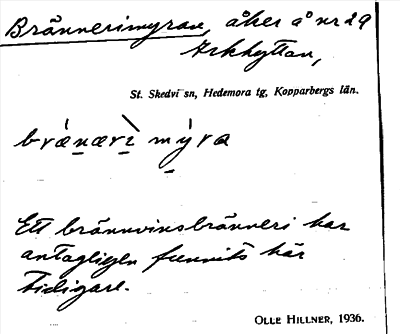 Brännerimyran, åker å nr 29
Arkhyttan,
St. Skedvi sn, Hedemora tg, Kopparbergs län.
brǽnærì mýra
Ett brännvinsbränneri har
antagligen funnits här
tidigare.
OLLE HILLNER, 1936.